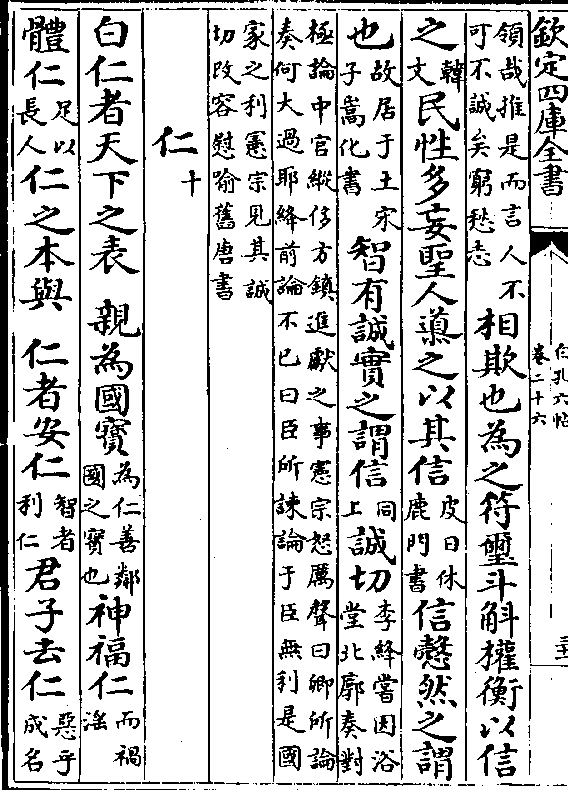 欽定四庫全書
白孔六帖
卷二十六
領哉推是而言人不可不誠矣窮愁志 相欺也為之符璽斗斛權衡以信
之 韓文 民性多妄聖人導之以其信 皮日休鹿門書 信慤然之謂
也 故居于土宋子嵩化書 智有誠實之謂信 同上 誠切 李絳嘗因浴堂北廓奏對
極論中官縱侈方鎮進獻之事憲宗怒厲聲曰卿所論
奏何大過耶絳前論不已曰臣所諫論于臣無利是國
家之利憲宗見其誠
切改容慰喻舊唐書
仁 十
白仁者天下之表 親為國寶 為仁善鄰國之寶也 神福仁 而禍淫
體仁 足以長人 仁之本與 仁者安仁 智者利仁 君子去仁 惡乎成名